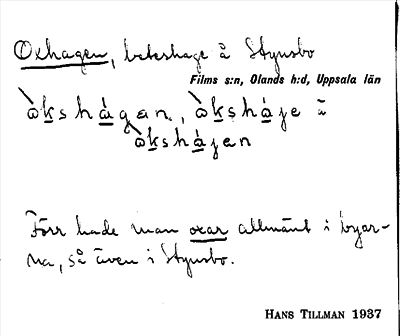 Oxhagen, beteshage å Stynsbo
Films s:n, Olands h:d, Uppsala län
ὼkshàgan, ὼkshàje ĩ
ὼkshàjen
Förr hade man oxar allmänt i byar-
na, så även i Stynsbo.
HANS TILLMAN 1937